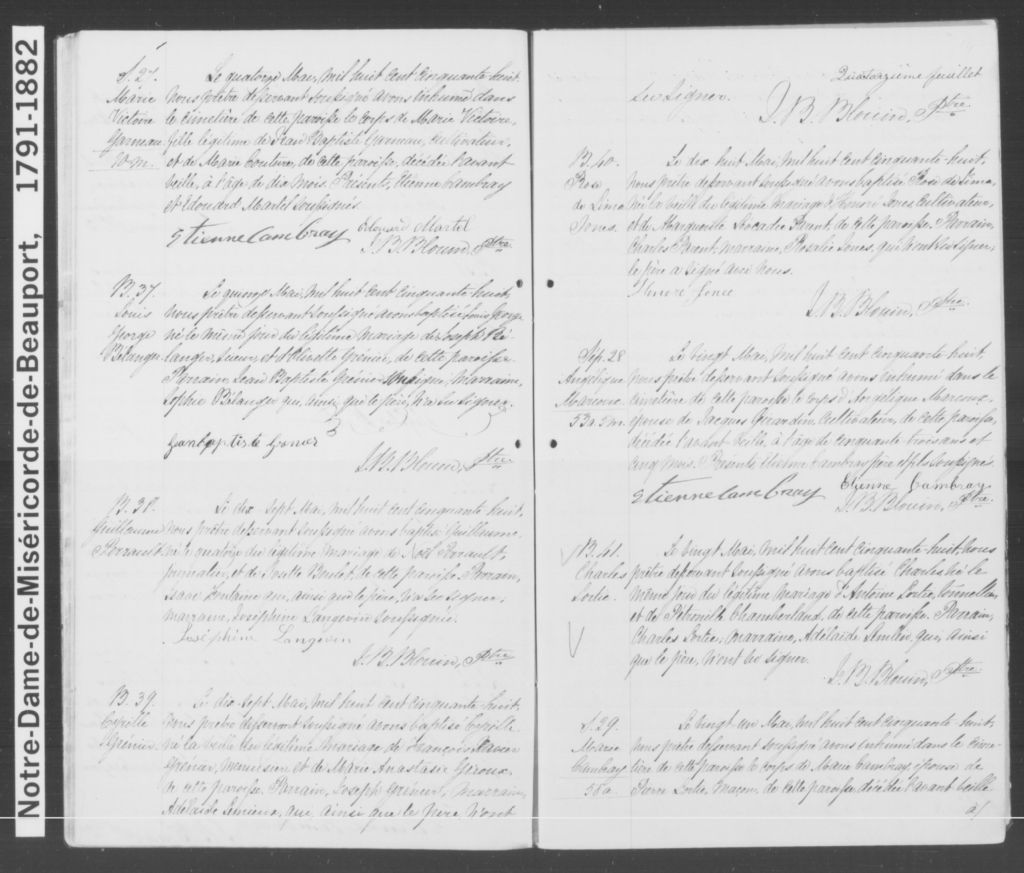 Notre-Dame-de-Miséricorde-de-Beauport, 1791-1882
S. 27.
Marie
Victoire
Garneau
10 m.
Le quatorze Mai, mil huit cent cinquante huit,
nous prêtre desservant soussigné avons inhumé dans
le cimetière de cette paroisse le corps de Marie Victoire,
fille légitime de Jean Baptiste Garneau, cultivateur,
et de Marie Couture, de cette paroisse, décédée l'avant
veille, à l'âge de dix mois. Présents, Etienne Cambray
et Edouard Martel soussignés.
Etienne Cambray Edouard Martel
J. B. Blouin, Ptre
B. 37.
Louis
George
Bélanger
Le quinze Mai, mil huit cent cinquante huit,
nous prêtre desservant soussigné avons baptisé Louis George
né le même jour du légitime mariage de Joseph Bé-
langer, et d'Olivette Grenier, de cette paroisse.
Parrain, Jean Baptiste Grenier soussigné, Marraine,
Sophie Bélanger qui, ainsi que le père, n'a su signer.
J. B. Blouin, Ptre
B. 38.
Guillaume
Le dix sept Mai, mil huit cent cinquante huit,
nous prêtre desservant soussigné avons baptisé Guillaume,
né le quatorze du légitime mariage de Noël
et de Josette de cette paroisse. Parrain,
Isaac Fontaine qui, ainsi que le père, n'a su signer,
marraine, Joséphine Langevin soussignée.
Joséphine Langevin
J. B. Blouin, Ptre
B. 39.
Cyrille
Grenier
Le dix sept Mai, mil huit cent cinquante huit,
nous prêtre desservant soussigné avons baptisé Cyrille
né la veille du légitime mariage de François Xavier
Grenier, menuisier et de Marie Anastasie Giroux,
de cette paroisse. Parrain, Joseph Grenier, marraine,
Adelaide Lemieux, qui, ainsi que le père n'ont
Quatorzième feuillet
su signer.
J. B. Blouin, Ptre
B. 40.
Rose
de Lima
Jones
Le dix huit Mai, mil huit cent cinquante huit,
nous prêtre desservant soussigné avons baptisé Rose de Lima,
née la veille du légitime mariage d'Honoré Jones cultivateur,
et de Marguerite Léocadie Parent, de cette paroisse. Parrain,
Charles Parent, marraine, Rosalie Jones, qui n'ont su signer,
le père a signé avec nous.
J. B. Blouin, Ptre
Sép. 28
Angélique
Marcoux
53 a. 5 m.
Le vingt Mai, mil huit cent cinquante huit,
nous prêtre desservant soussigné avons inhumé dans le
cimetière de cette paroisse le corps d'Angélique Marcoux
épouse de Jacques Girardin, cultivateur, de cette paroisse,
décédée l'avant veille à l'âge de cinquante trois ans et
cinq mois. Présents Etienne Cambray père et fils soussignés.
Etienne Cambray Etienne Cambray
J. B. Blouin, Ptre
B. 41.
Charles
Lortie
Le vingt Mai, mil huit cent cinquante huit, nous
prêtre desservant soussigné avons baptisé Charles né le
même jour du légitime mariage d'Antoine Lortie, tonnellier,
et de Pétronille Chamberland, de cette paroisse. Parrain,
Charles Lortie, marraine, Adélaïde qui, ainsi
que le père, n'ont su signer.
J. B. Blouin, Ptre
S. 29.
Marie
Cambray
58 a.
Le vingt un Mai, mil huit cent cinquante huit,
nous prêtre desservant soussigné avons inhumé dans le cime-
tière de cette paroisse le corps de Marie Cambray, épouse de
Pierre Lortie, Maçon, de cette paroisse, décédée l'avant veille
à/